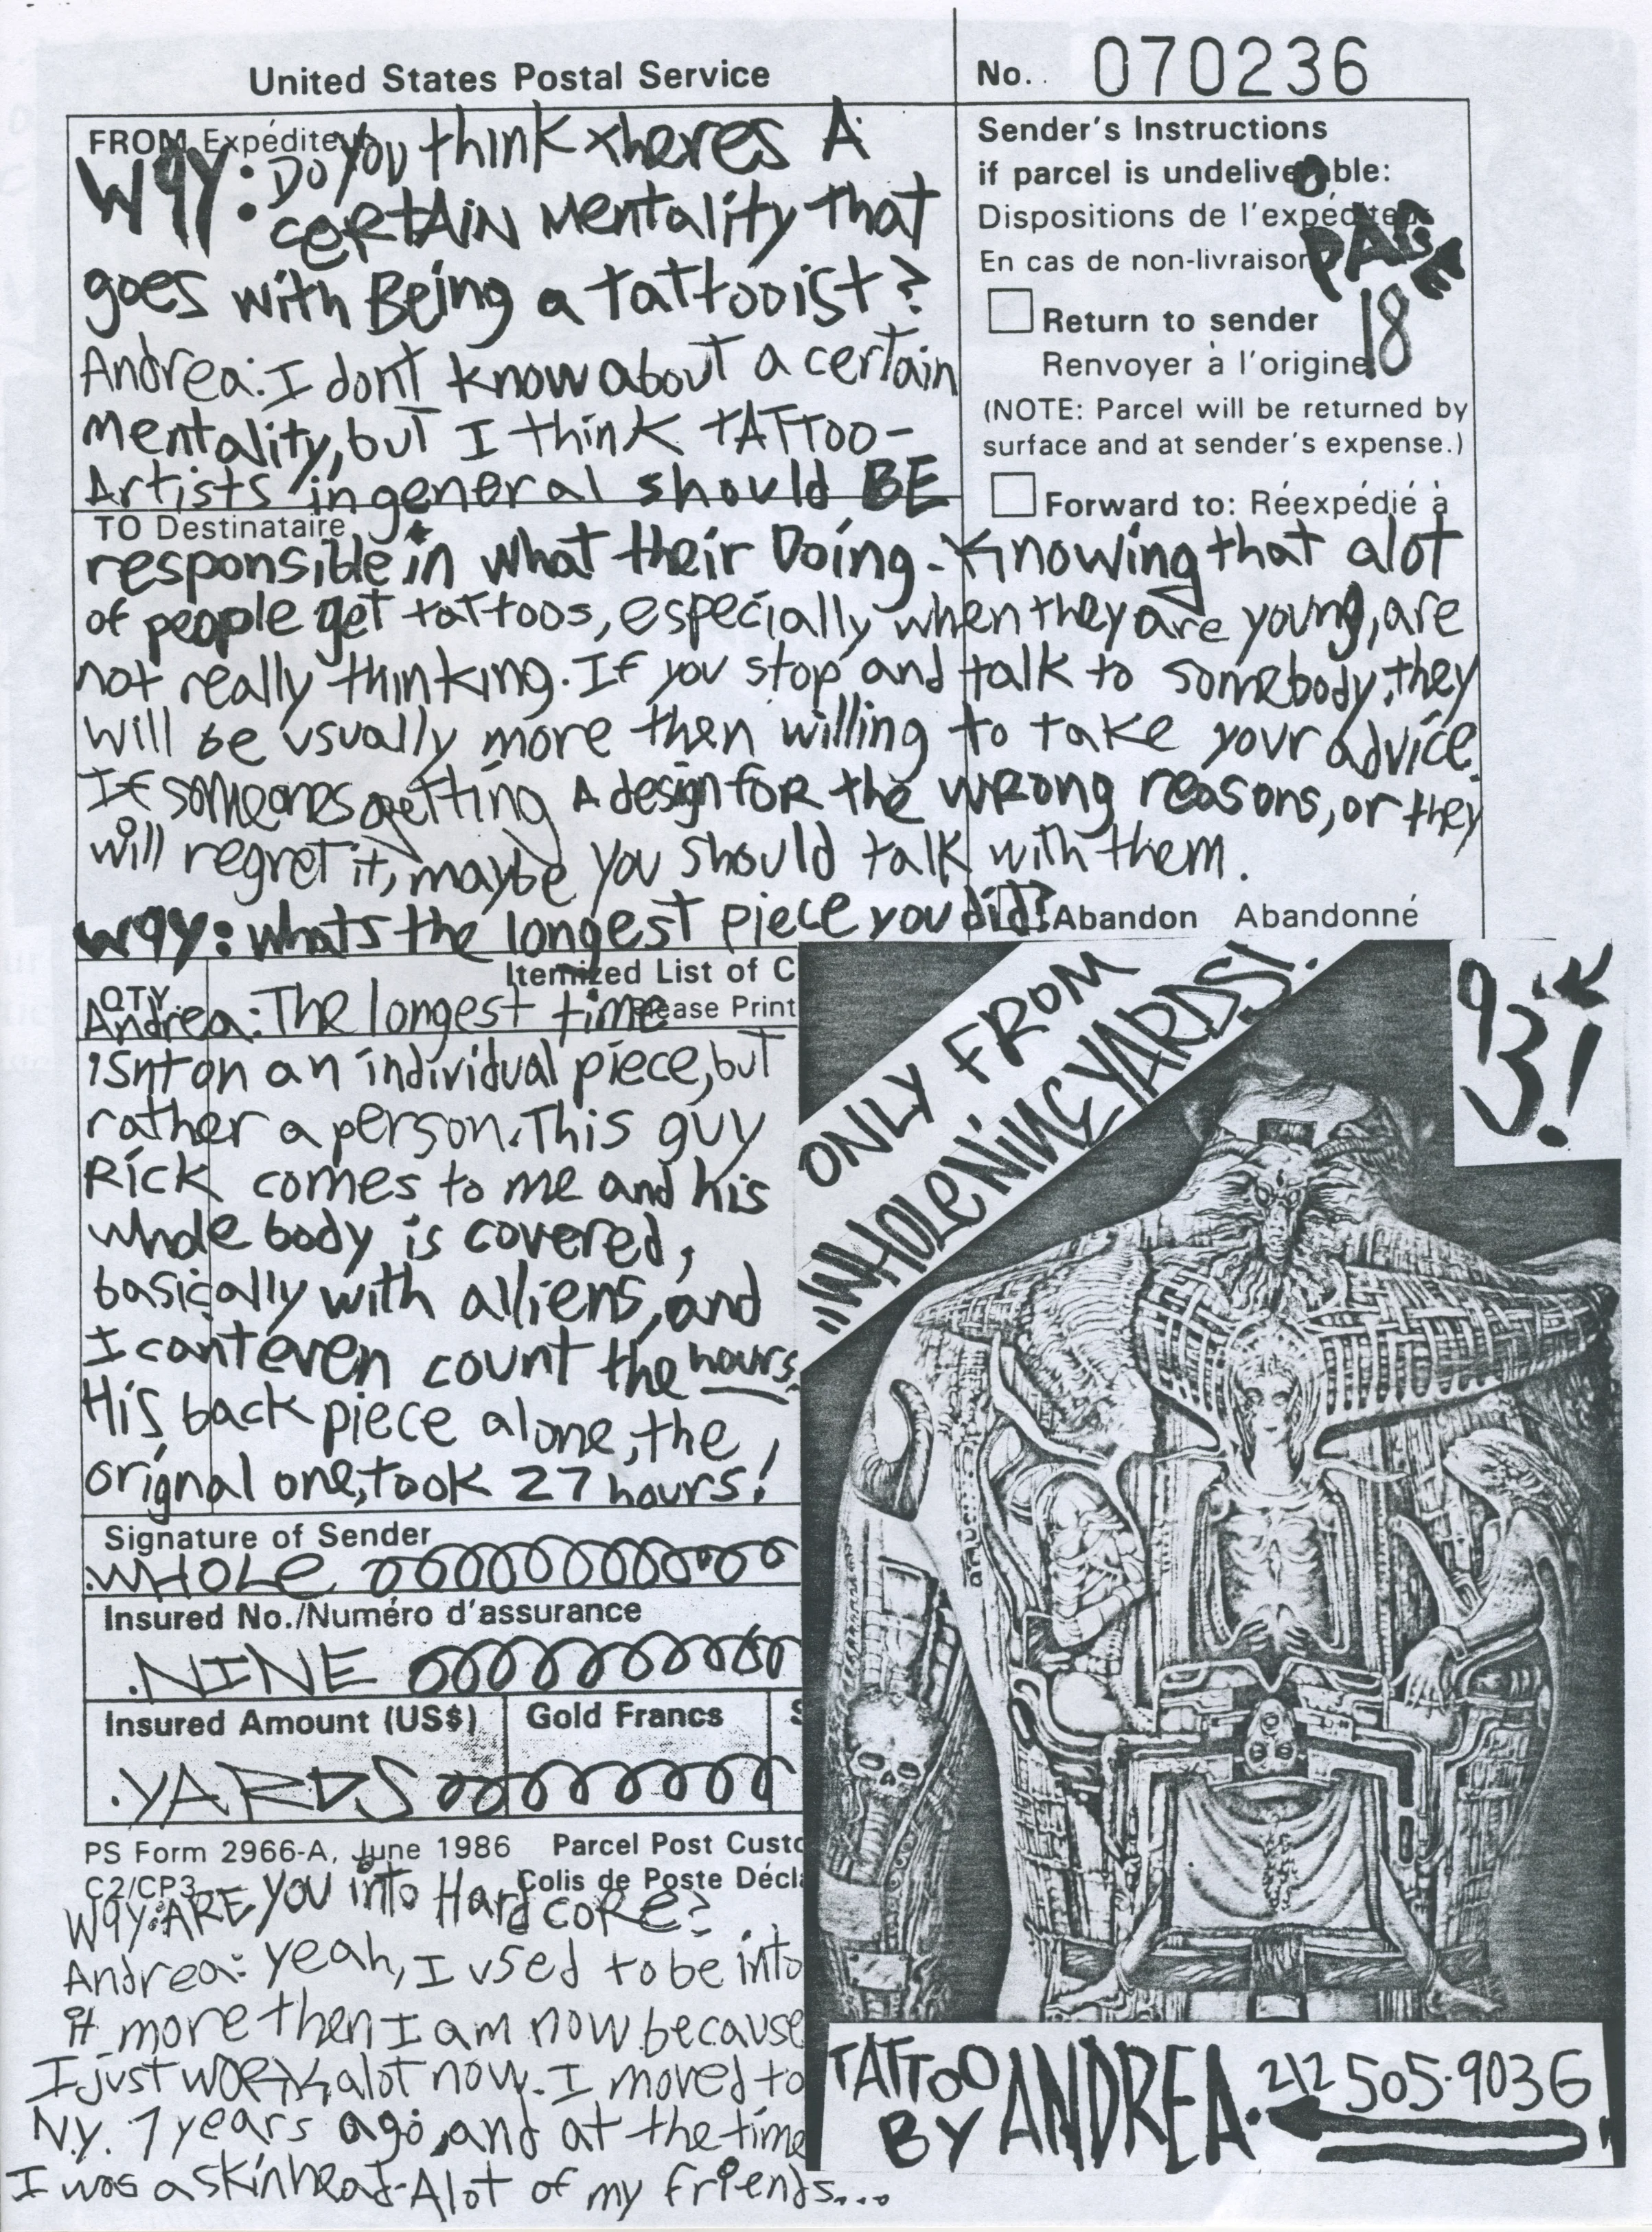 United States Postal Service
No. 070236
FROM Expéditeur
Sender's Instructions
if parcel is undeliverable:
Dispositions de l'expéditeur
En cas de non-livraison
PAGE
18
Return to sender
Renvoyer à l'origine
(NOTE: Parcel will be returned by
surface and at sender's expense.)
Forward to: Réexpédié à
W9Y: Do you think theres A
certAin mentality that
goes with Being a tattooist?
Andrea: I dont know about a certain
mentality, but I think tATToo-
Artists in general should BE
TO Destinataire
responsible in what their Doing. Knowing that alot
of people get tattoos, especially when they are young, are
not really thinking. If you stop and talk to somebody, they
will be usually more then willing to take your advice.
If someones getting A design foR the wRong reasons, or they
will regret it, maybe you should talk with them.
W9Y: whats the longest piece you did?
Abandon Abandonné
Itemized List of C
QTY.
Please Print
Andrea: The longest time
isnt on an individual piece, but
rather a person. This guy
Rick comes to me and his
whole body is covered,
basically with alliens, and
I cant even count the hours.
His back piece alone, the
orignal one, took 27 hours!
Signature of Sender
.WHOLe
Insured No./Numéro d'assurance
.NINE
Insured Amount (US$)
Gold Francs
S
.YARDS
PS Form 2966-A, June 1986
Parcel Post Custo
C2/CP3
Colis de Poste Décla
W9Y: ARE you into Hardcore?
Andrea: yeah, I used to be into
it more then I am now because
I just work alot now. I moved to
N.Y. 7 years ago, and at the time
I was a skinhead. Alot of my friends...
ONLY FROM
"WHOLENINEYARDS!"
93!
TATToo
BY ANDREA. 212 505-9036